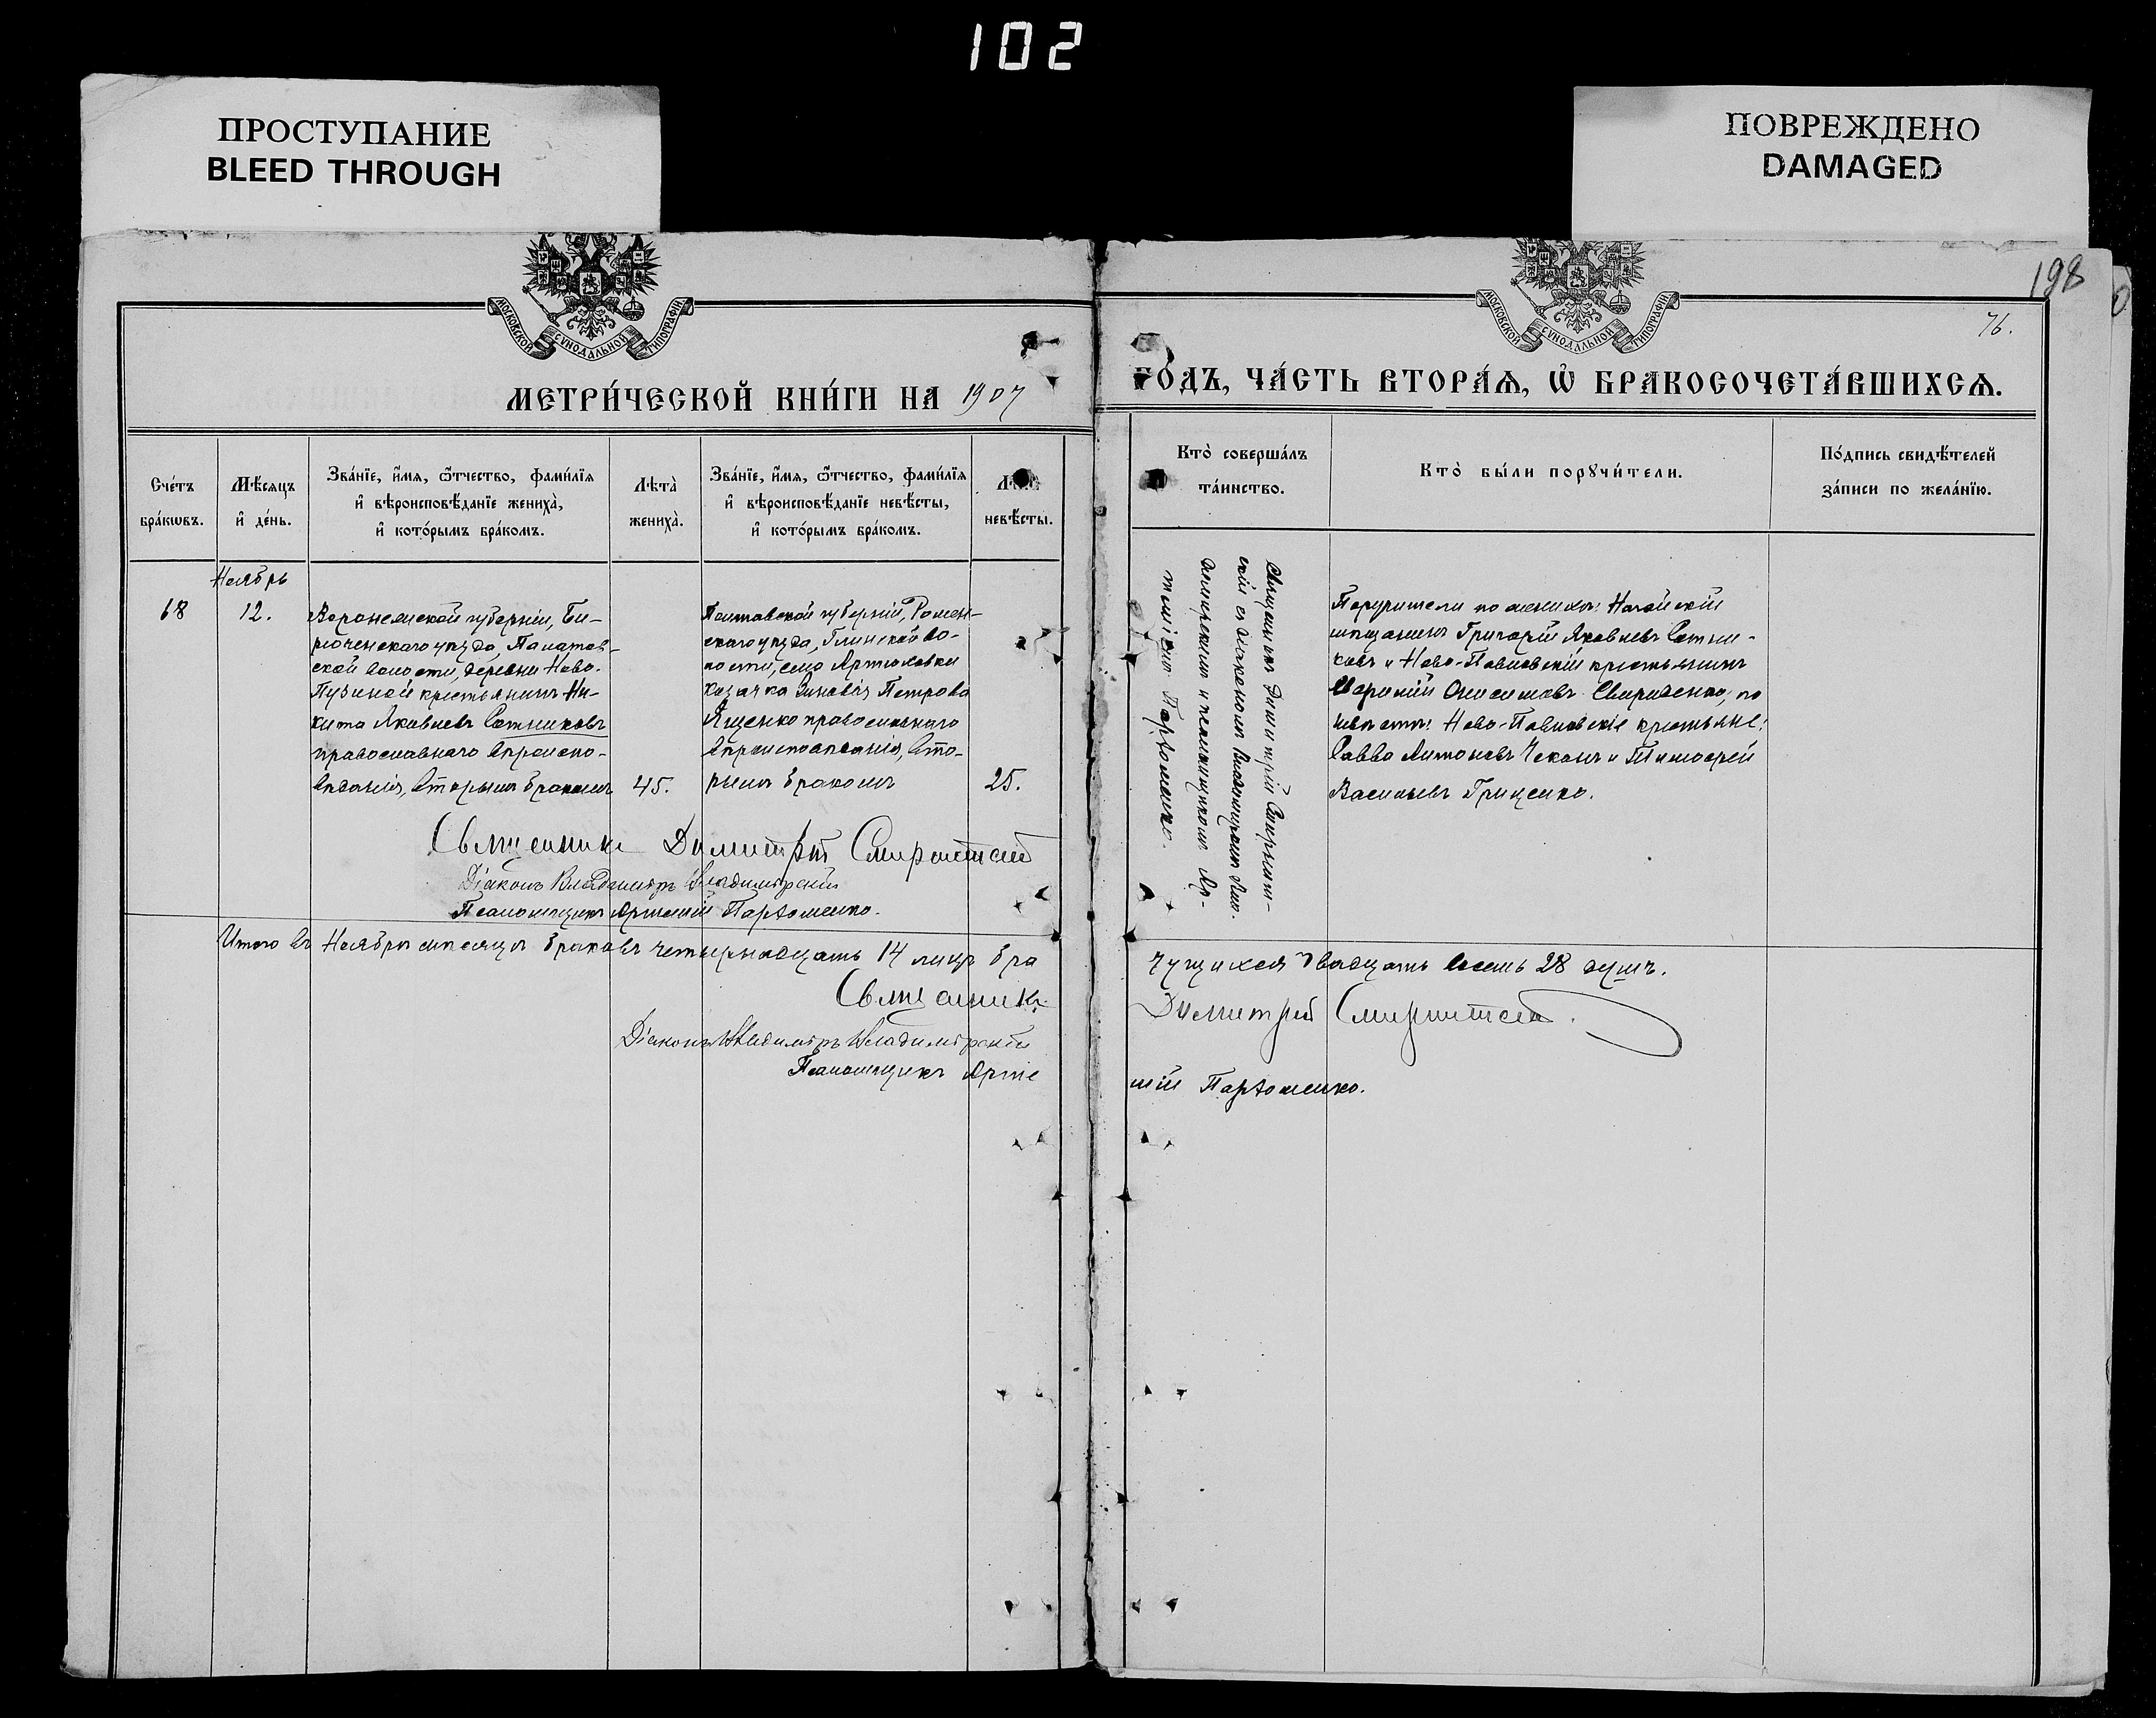 102
ПРОСТУПАНИЕ
BLEED THROUGH
ПОВРЕЖДЕНО
DAMAGED
198
76.
МОСКОВСКОЙ СѴНОДАЛЬНОЙ ТИПОГРАФІИ
МОСКОВСКОЙ СѴНОДАЛЬНОЙ ТИПОГРАФІИ
МЕТРИ́ЧЕСКОЙ КНИ́ГИ НА 1907
ГО́ДЪ, ЧА́СТЬ ВТОРА́Ѧ, Ѽ БРАКОСОЧЕТА́ВШИХСѦ.
Сче́тъ
бра́кѡвъ.
Мѣ́сяцъ
и҆ де́нь.
Зва́нїе, и҆́мя, ѻ҆́тчество, фами́лїя
и҆ вѣроисповѣ́данїе жениха̀,
и҆ кото́рымъ бра́комъ.
Лѣта̀
жениха̀.
Зва́нїе, и҆́мя, ѻ҆́тчество, фами́лїя
и҆ вѣроисповѣ́данїе невѣ́сты,
и҆ кото́рымъ бра́комъ.
невѣ́сты.
Кто̀ соверша́лъ
та́инство.
Кто̀ бы́ли порꙋчи́тели.
По́дпись свидѣ́телей
за́писи по жела́нїю.
Ноябрь
68
12.
Воронежской губерніи, Би-
рюченскаго уѣзда, Палатов-
ской волости, деревни Ново-
крестьянинъ Ни-
кита Яковлевъ Сотниковъ
православнаго вѣроиспо-
вѣданія, вторымъ бракомъ
45.
Полтавской губерніи, Ромен-
скаго уѣзда, Глинской во-
лости, села Артюховки
козачка Зиновія Петрова
Ященко православнаго
вѣроисповѣданія, вто-
рымъ бракомъ
25.
Священникъ Димитрій
съ діакономъ Владимиромъ Вла-
димірскимъ и псаломщикомъ Ар-
теміемъ Пархоменко.
Поручители по женихѣ: Ногайскій
мѣщанинъ Григорій Яковлевъ Сотни-
ковъ и Ново-Павловскій крестьянинъ
Онисимовъ Свириденко; по
невѣстѣ: Ново-Павловскіе крестьяне:
Савва Антоновъ Чеканъ и Тимофей
Васильевъ Гриценко.
Священникъ Димитрій
Діаконъ Владиміръ Владимірскій
Псаломщикъ Артемій Пархоменко.
Итого въ Ноябрѣ мѣсяцѣ браковъ четырнадцать 14 лицъ бра
чущихся двадцать восемь 28 душъ.
Священникъ Димитрій
Діаконъ Владиміръ Владимірскій
Псаломщикъ Арте
мій Пархоменко.